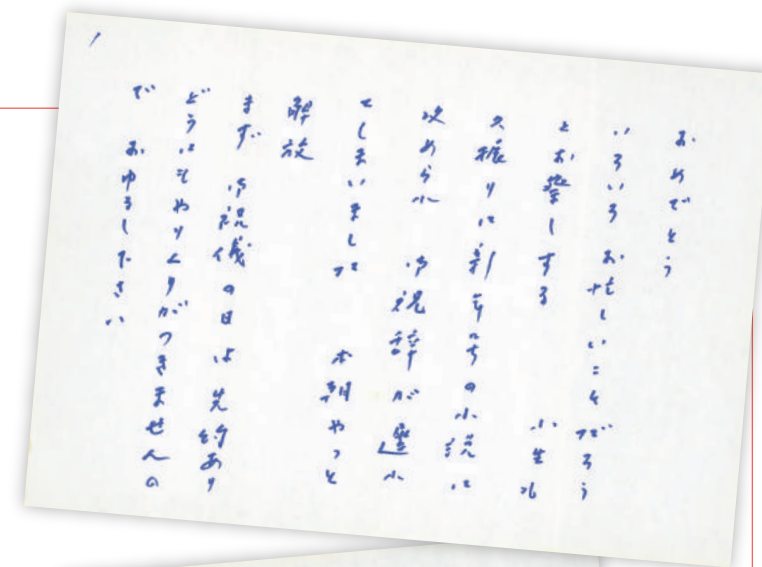 おめでとう
いろいろ お忙しいことだろう
とお察しする 小生も
久振りに新年号の小説に
攻められ 御祝辞が遅れ
てしまいました 本朝やっと
解放
まず 御祝儀の日は先約あり
どうにもやりくりがつきませんの
で おゆるしください
1